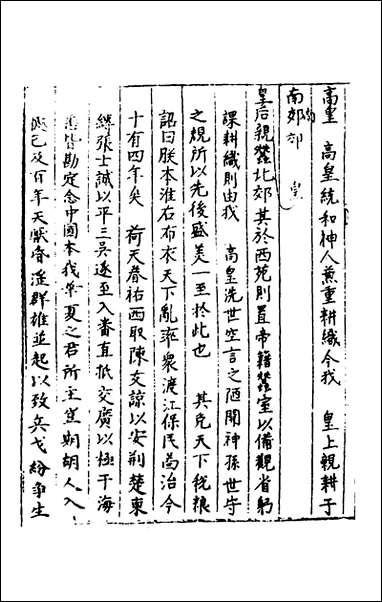 高皇　高皇統和神人兼重耕織今我　皇上親耕于
南郊
皇后親蠶北郊其於西苑則置帝籍蠶室以備觀省躬
課耕織則由我　高皇洗世空言之陋開神孫世守
之規所以先後盛美一至於此也　其免天下稅粮
詔曰朕本淮右布衣天下亂率衆渡江保民啚治今
十有四年矣　荷天眷祐西取陳友諒以安荆楚東
縛張士誠以平三吳遂至入番直抵交廣以極于海
悉皆勘定念中國本我華夏之君所主豈期胡人入
已及百年天厭春淫群雄並起以致兵戈紛爭生